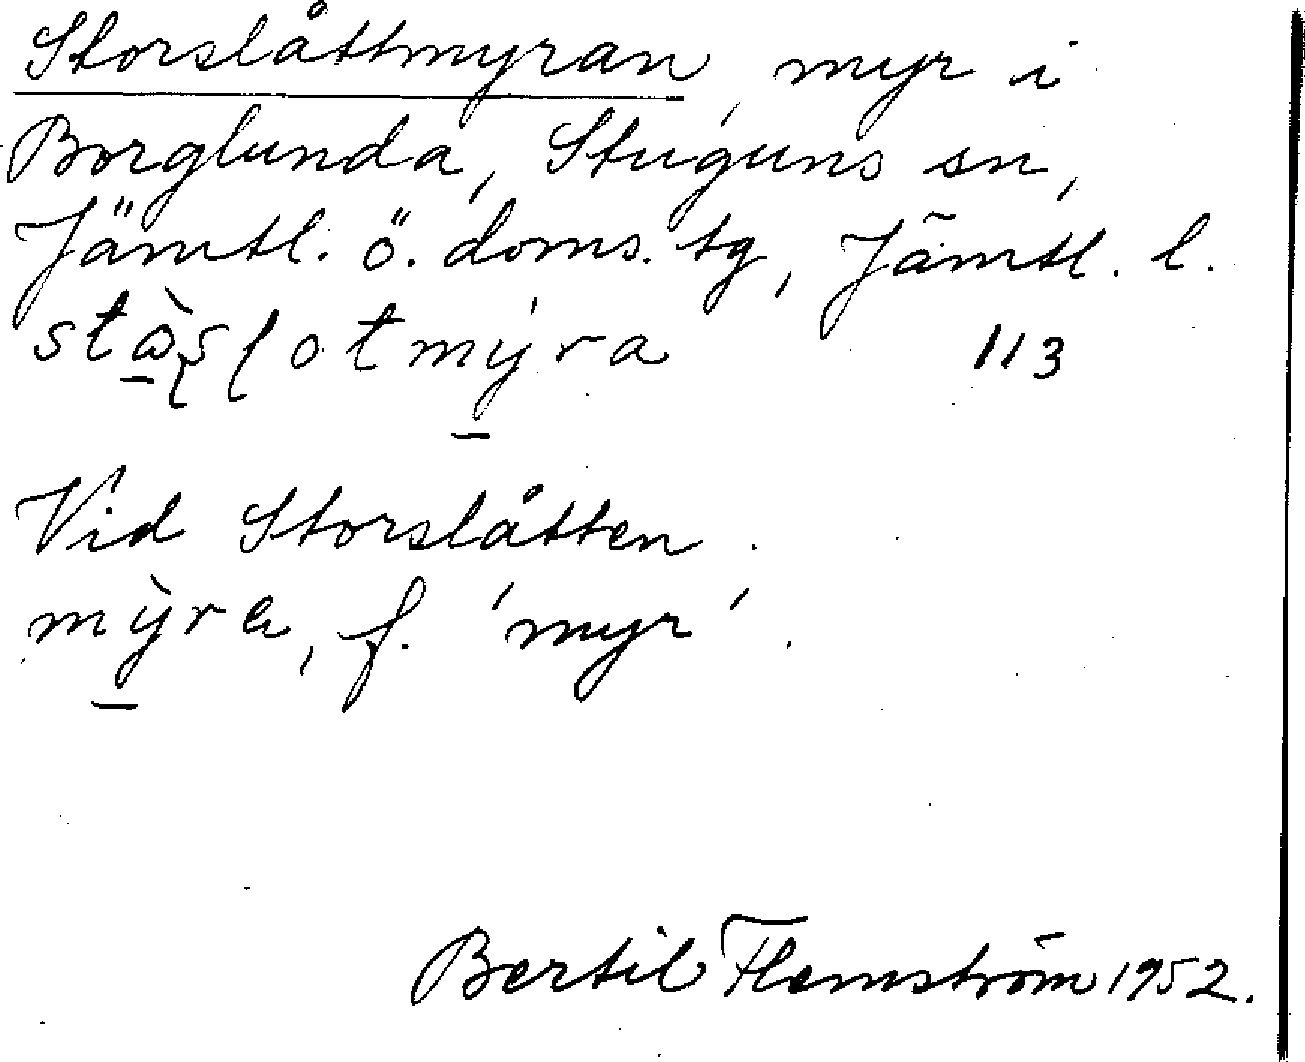 Storslåttmyran, myr i
Borglunda, Stuguns sn,
Jämtl. ö. doms. tg, Jämtl. l.
stɷ̀sʃotmýra 113
Vid Storslåtten.
mỳra, f. 'myr'.
Bertil Flemström 1952.